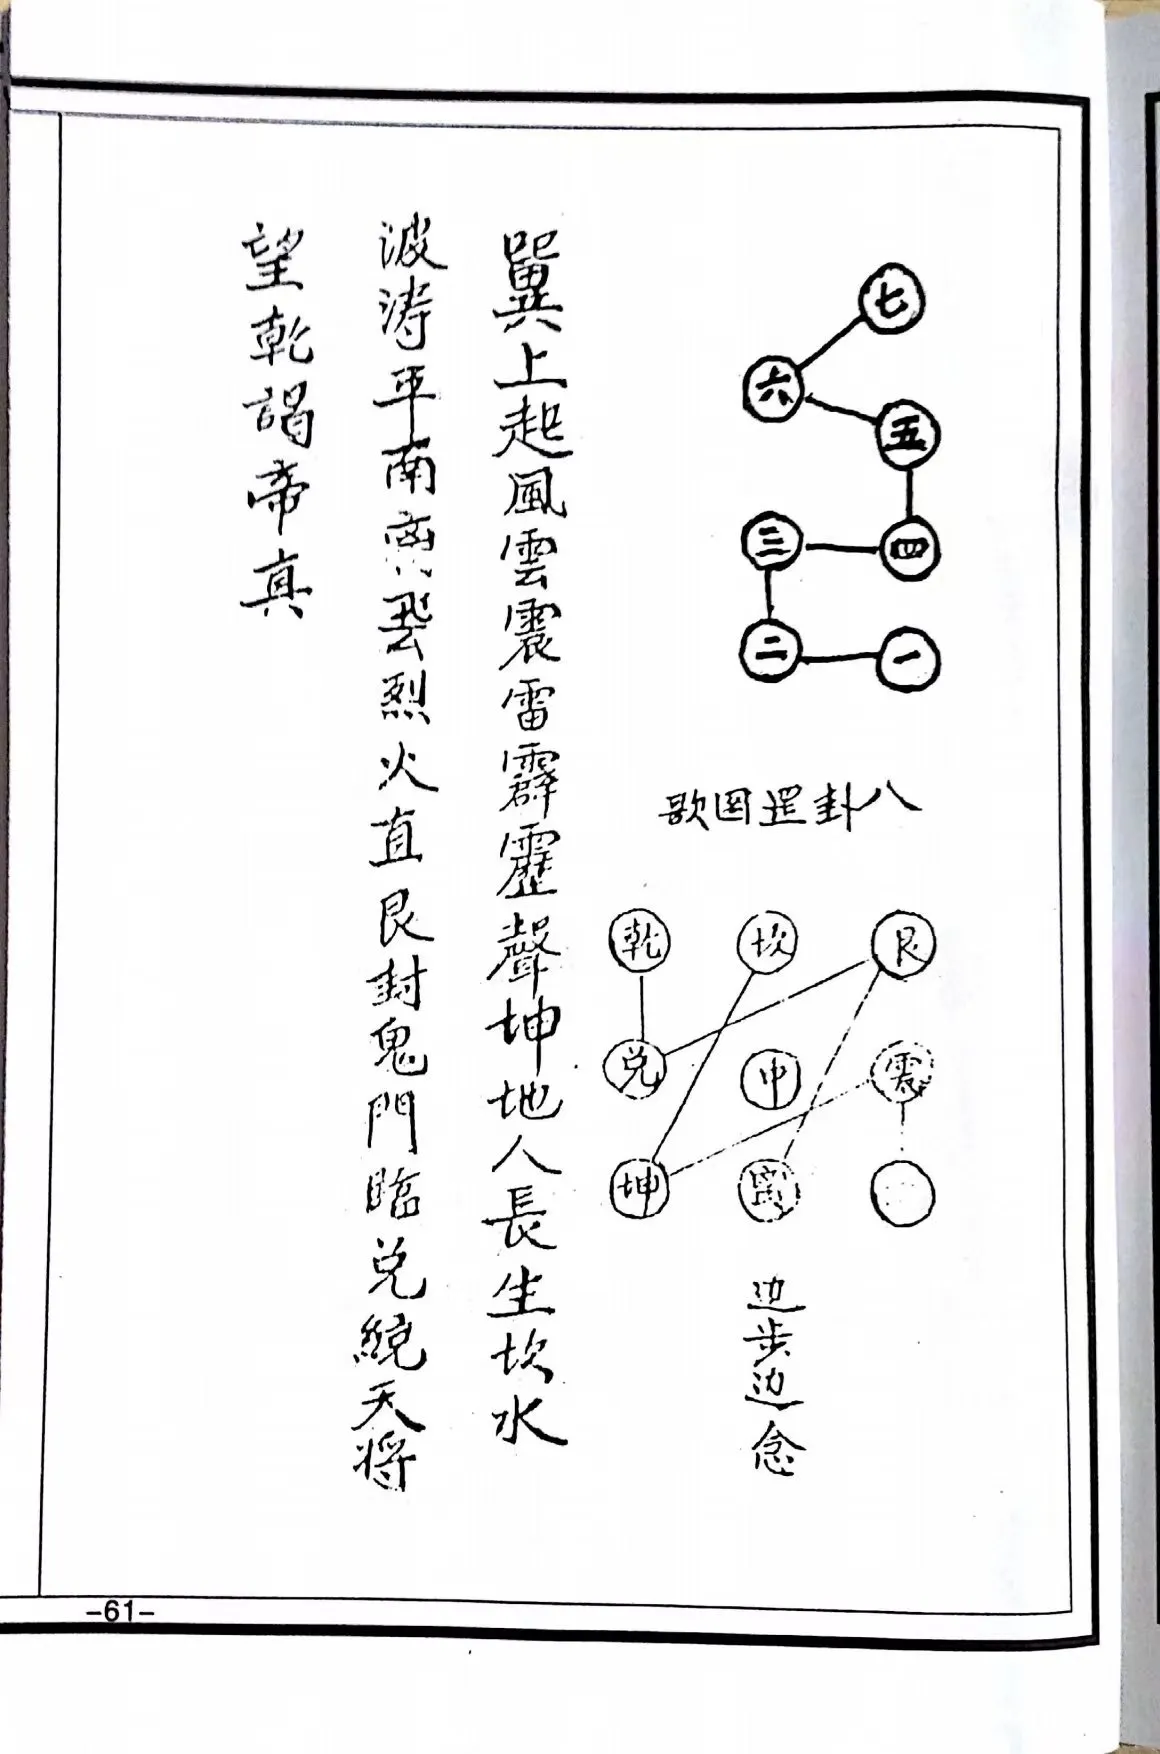 七
六
五
三
四
二
一
八卦罡図歌
乾
坎
艮
兑
中
震
坤
离
边步边念
巽上起風雲震雷霹靂聲坤地人長生坎水
波涛平南离烈火直艮封鬼門臨兑統天将
望乾謁帝真
-61-